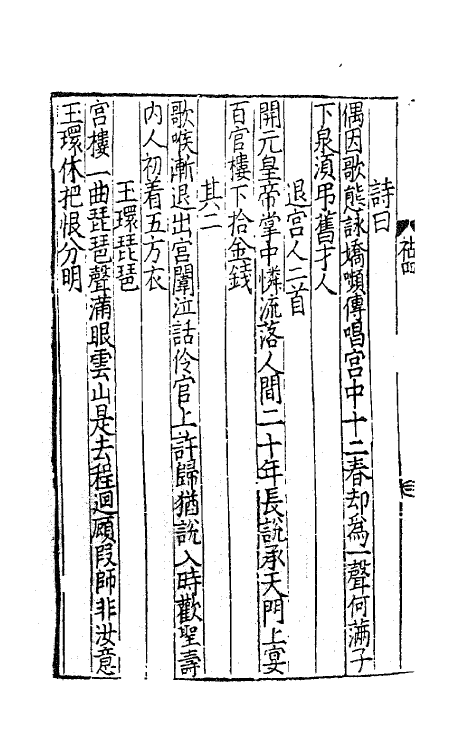 詩曰
偶因歌態詠嬌嚬傳唱宮中十二春却為一聲何滿子
下泉湏弔舊才人
退宮人二首
開元皇帝掌中憐流落人間二十年長說承天門上宴
百官樓下拾金錢
其二
歌喉漸退出宮闈泣話伶官上許歸猶說入時歡聖壽
内人初着五方衣
玉環琵琶
宮樓一曲琵琶聲滿眼雲山是去程迴顧叚師非汝意
玉環休把恨分明